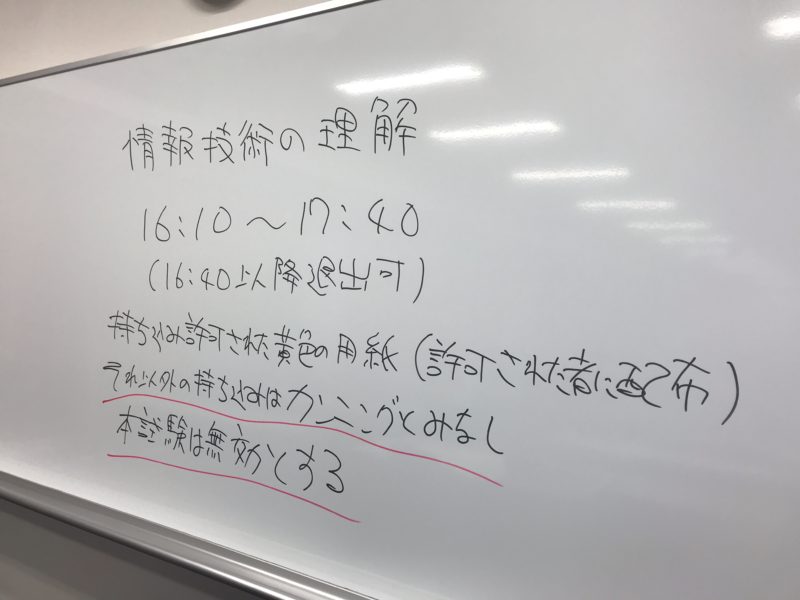 情報技術の理解
16:10～17:40
(16:40以降退出可)
持ち込み許可された黄色の用紙(許可された者に配布)
それ以外の持ち込みはカンニングとみなし
本試験は無効とする